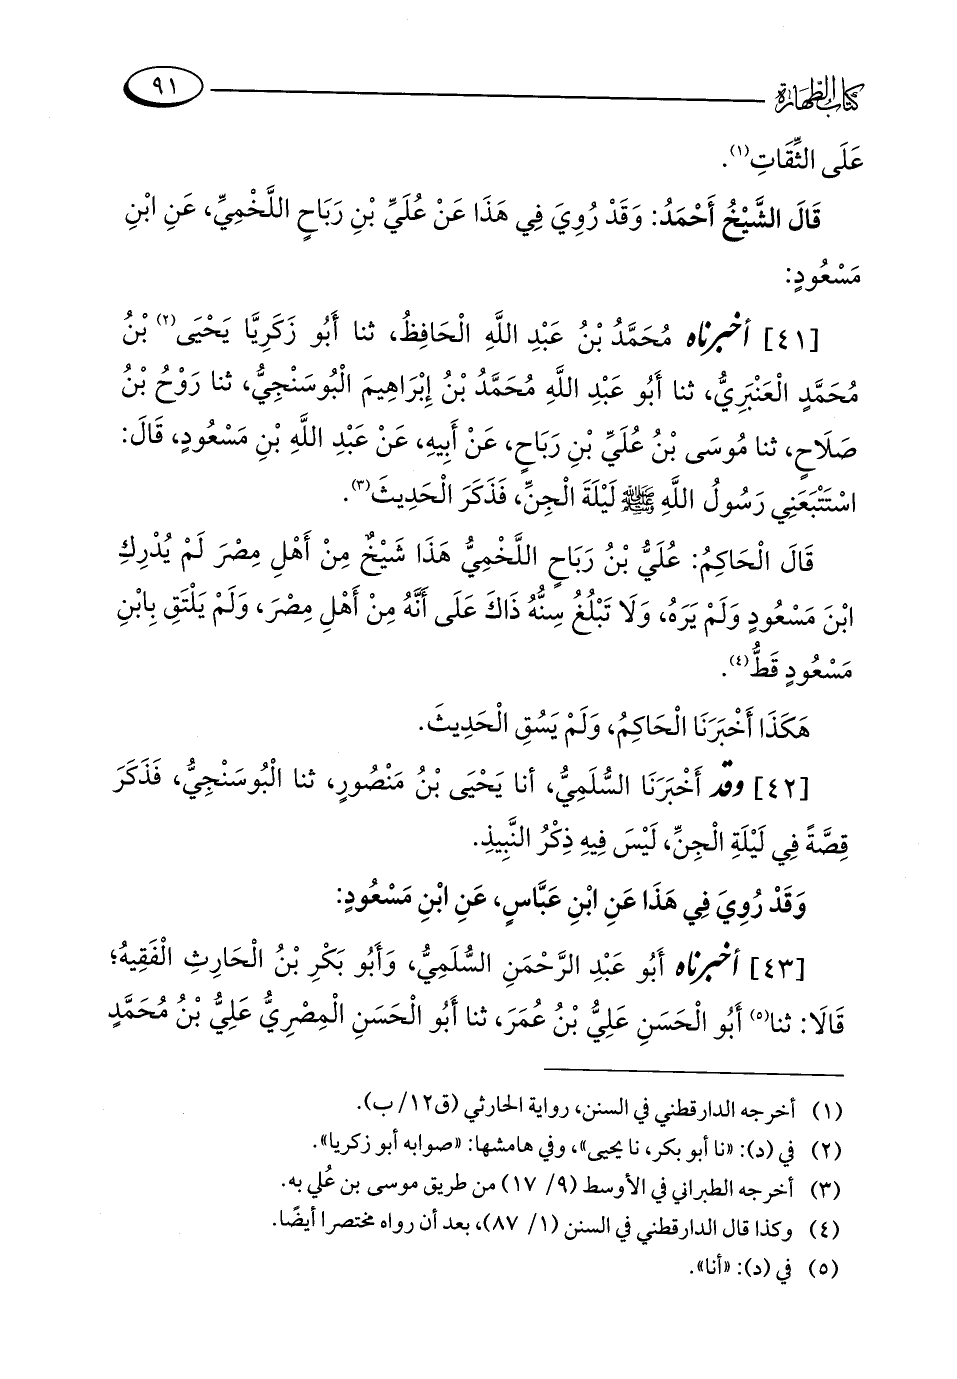 كتاب الطهارة
٩١
عَلَى الثِّقَاتِ(١).
قَالَ الشَّيْخُ أَحْمَدُ: وَقَدْ رُوِيَ فِي هَذَا عَنْ عُلَيِّ بْنِ رَبَاحٍ اللَّخْمِيِّ، عَنِ ابْنِ
مَسْعُودٍ:
[٤١] أخبرناه مُحَمَّدُ بْنُ عَبْدِ اللَّهِ الْحَافِظُ، ثنا أَبُو زَكَرِيَّا يَحْيَى(٢) بْنُ
مُحَمَّدٍ الْعَنْبَرِيُّ، ثنا أَبُو عَبْدِ اللَّهِ مُحَمَّدُ بْنُ إِبْرَاهِيمَ الْبُوسَنْجِيُّ، ثنا رَوْحُ بْنُ
صَلَاحٍ، ثنا مُوسَى بْنُ عُلَيِّ بْنِ رَبَاحٍ، عَنْ أَبِيهِ، عَنْ عَبْدِ اللَّهِ بْنِ مَسْعُودٍ، قَالَ:
اسْتَتْبَعَنِي رَسُولُ اللَّهِ ﷺ لَيْلَةَ الْجِنِّ، فَذَكَرَ الْحَدِيثَ(٣).
قَالَ الْحَاكِمُ: عُلَيُّ بْنُ رَبَاحٍ اللَّخْمِيُّ هَذَا شَيْخٌ مِنْ أَهْلِ مِصْرَ لَمْ يُدْرِكِ
ابْنَ مَسْعُودٍ وَلَمْ يَرَهُ، وَلَا تَبْلُغُ سِنُّهُ ذَاكَ عَلَى أَنَّهُ مِنْ أَهْلِ مِصْرَ، وَلَمْ يَلْتَقِ بِابْنِ
مَسْعُودٍ قَطُّ(٤).
هَكَذَا أَخْبَرَنَا الْحَاكِمُ، وَلَمْ يَسُقِ الْحَدِيثَ.
[٤٢] وقد أَخْبَرَنَا السُّلَمِيُّ، أنا يَحْيَى بْنُ مَنْصُورٍ، ثنا الْبُوسَنْجِيُّ، فَذَكَرَ
قِصَّةً فِي لَيْلَةِ الْجِنِّ، لَيْسَ فِيهِ ذِكْرُ النَّبِيذِ.
وَقَدْ رُوِيَ فِي هَذَا عَنِ ابْنِ عَبَّاسٍ، عَنِ ابْنِ مَسْعُودٍ:
[٤٣] أخبرناه أَبُو عَبْدِ الرَّحْمَنِ السُّلَمِيُّ، وَأَبُو بَكْرِ بْنُ الْحَارِثِ الْفَقِيهُ؛
قَالَا: ثنا(٥) أَبُو الْحَسَنِ عَلِيُّ بْنُ عُمَرَ، ثنا أَبُو الْحَسَنِ الْمِصْرِيُّ عَلِيُّ بْنُ مُحَمَّدٍ
(١) أخرجه الدارقطني في السنن، رواية الحارثي (ق١٢/ ب).
(٢) في (د): «نا أبو بكر، نا يحيى»، وفي هامشها: «صوابه أبو زكريا».
(٣) أخرجه الطبراني في الأوسط (٩/ ١٧) من طريق موسى بن عُلي به.
(٤) وكذا قال الدارقطني في السنن (١/ ٨٧)، بعد أن رواه مختصرا أيضًا.
(٥) في (د): «أنا».